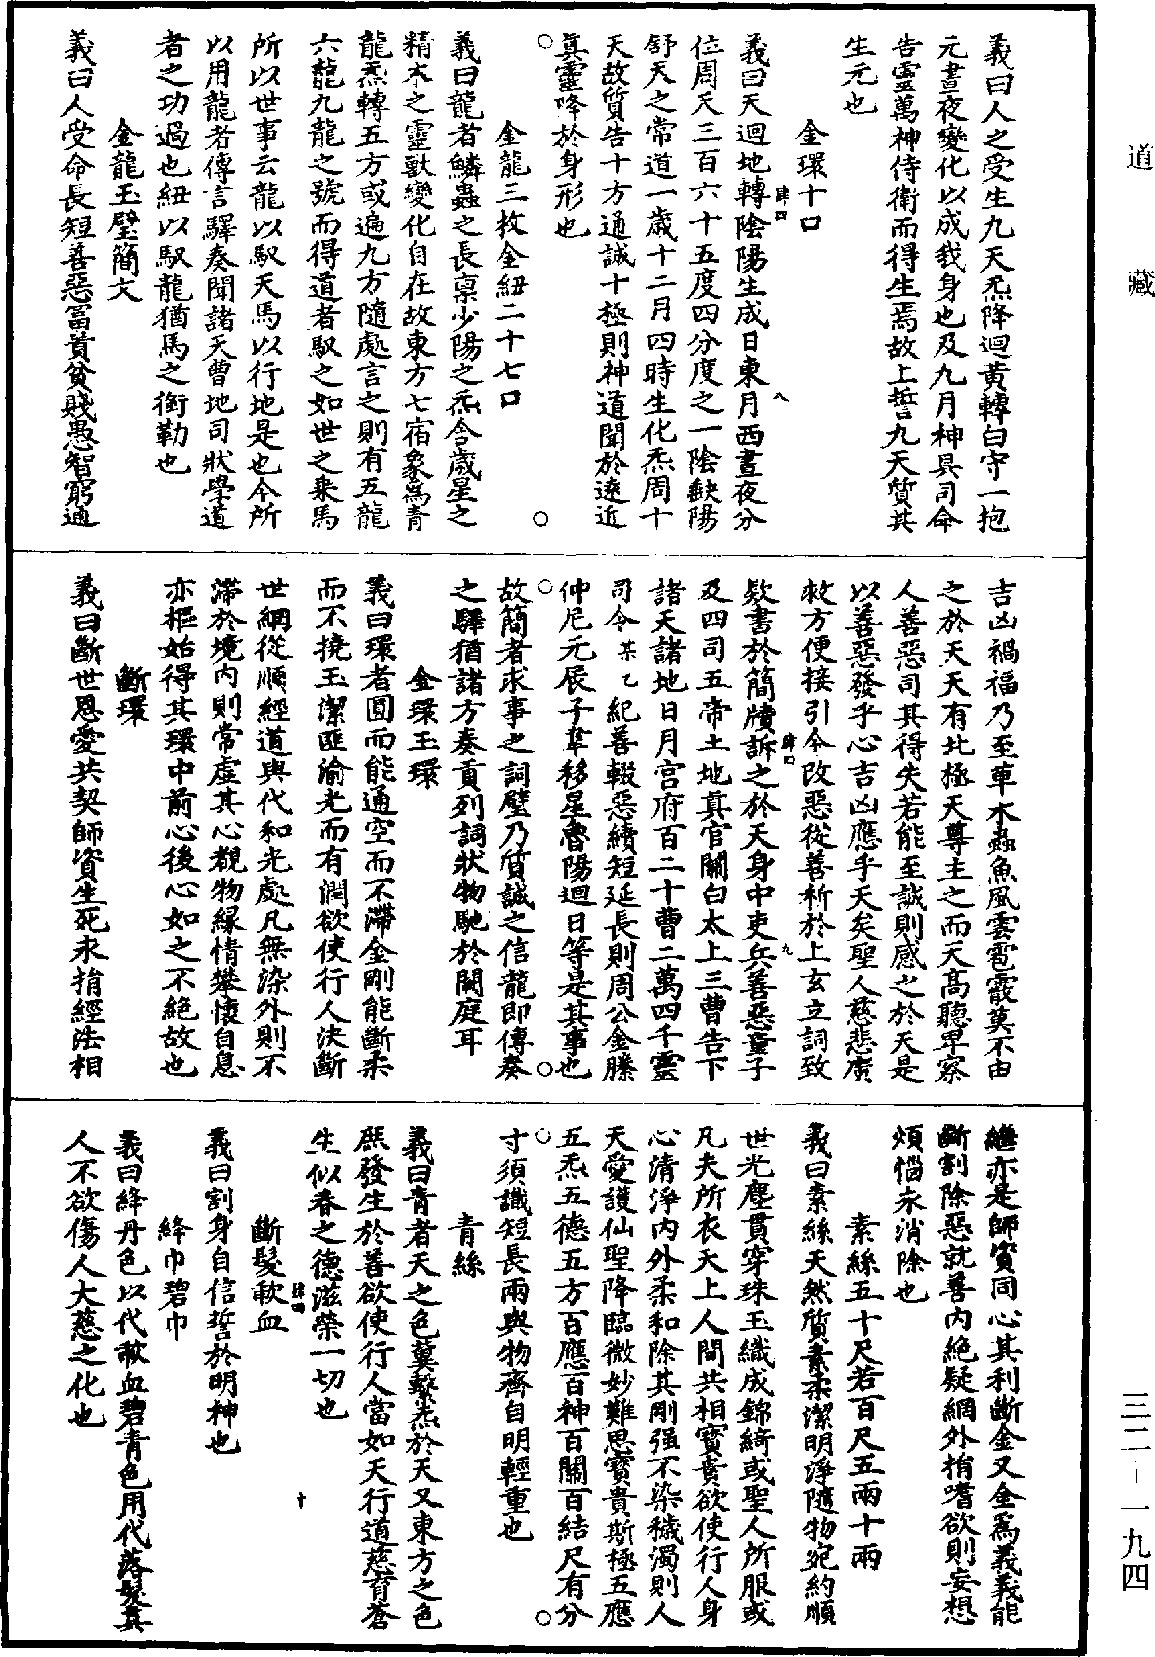 道藏
三二－一九四
義曰人之受生九天炁降迴黄轉白守一抱
元晝夜變化以成我身也及九月神具司命
告靈萬神侍衛而得生焉故上誓九天質其
生元也
金環十口
義曰天迴地轉陰陽生成日東月西晝夜分
肆四 八
位周天三百六十五度四分度之一陰缺陽
舒天之常道一歲十二月四時生化炁周十
天故質告十方通誠十極則神道聞於遠近
真靈降於身形也
金龍三枚金紐二十七口
義曰龍者鱗蟲之長稟少陽之炁含歲星之
精木之靈獸變化自在故東方七宿象爲青
龍炁轉五方或遍九方隨處言之則有五龍
六龍九龍之號而得道者馭之如世之乘馬
所以世事云龍以馭天馬以行地是也今所
以用龍者傳言驛奏聞諸天曹地司狀學道
者之功過也紐以馭龍猶馬之銜勒也
金龍玉璧簡文
義曰人受命長短善惡冨貴貧賤愚智窮通
吉凶禍福乃至草木蟲魚風雲雹霰莫不由
之於天天有北極天尊主之而天髙聽卑察
人善惡司其得失若能至誠則感之於天是
以善惡發乎心吉凶應乎天矣聖人慈悲廣
救方便接引令改惡從善祈於上玄立詞致
欵書於簡牘訴之於天身中吏兵善惡童子
肆四 九
及四司五帝土地真官關白太上三曹告下
諸天諸地日月宫府百二十曹二萬四千靈
司令某乙紀善輟惡續短延長則周公金縢
仲尼元辰子韋移星魯陽迴日等是其事也
故簡者求事之詞璧乃質誠之信龍即傳奏
之驛猶諸方奏貢列詞狀物馳於闕庭耳
金環玉環
義曰環者圓而能通空而不滯金剛能斷柔
而不撓玉潔匪渝光而有潤欲使行人決斷
世網從順經道與代和光處凡無染外則不
滯於境内則常虚其心覩物縁情攀懷自息
亦樞始得其環中前心後心如之不絶故也
斷環
義曰斷世恩愛共契師資生死永捐經法相
繼亦是師資同心其利斷金又金爲義義能
斷割除惡就善内絶疑網外捐嗜欲則妄想
煩惱永消除也
素絲五十尺若百尺五兩十兩
義曰素絲天然質素柔潔明淨隨物宛約順
世光塵貫穿珠玉織成錦綺或聖人所服或
凡夫所衣天上人間共相寳貴欲使行人身
心清淨内外柔和除其剛强不染穢濁則人
天愛護仙聖降臨微妙難思寳貴斯極五應
五炁五德五方百應百神百關百結尺有分
寸須識短長兩與物齊自明輕重也
青絲
義曰青者天之色冀繫炁於天又東方之色
庶發生於善欲使行人當如天行道慈育蒼
生似春之德滋榮一切也
斷髮歃血
肆四 十
義曰割身自信誓於明神也
絳巾碧巾
義曰絳丹色以代歃血碧青色用代落髮真
人不欲傷人大慈之化也